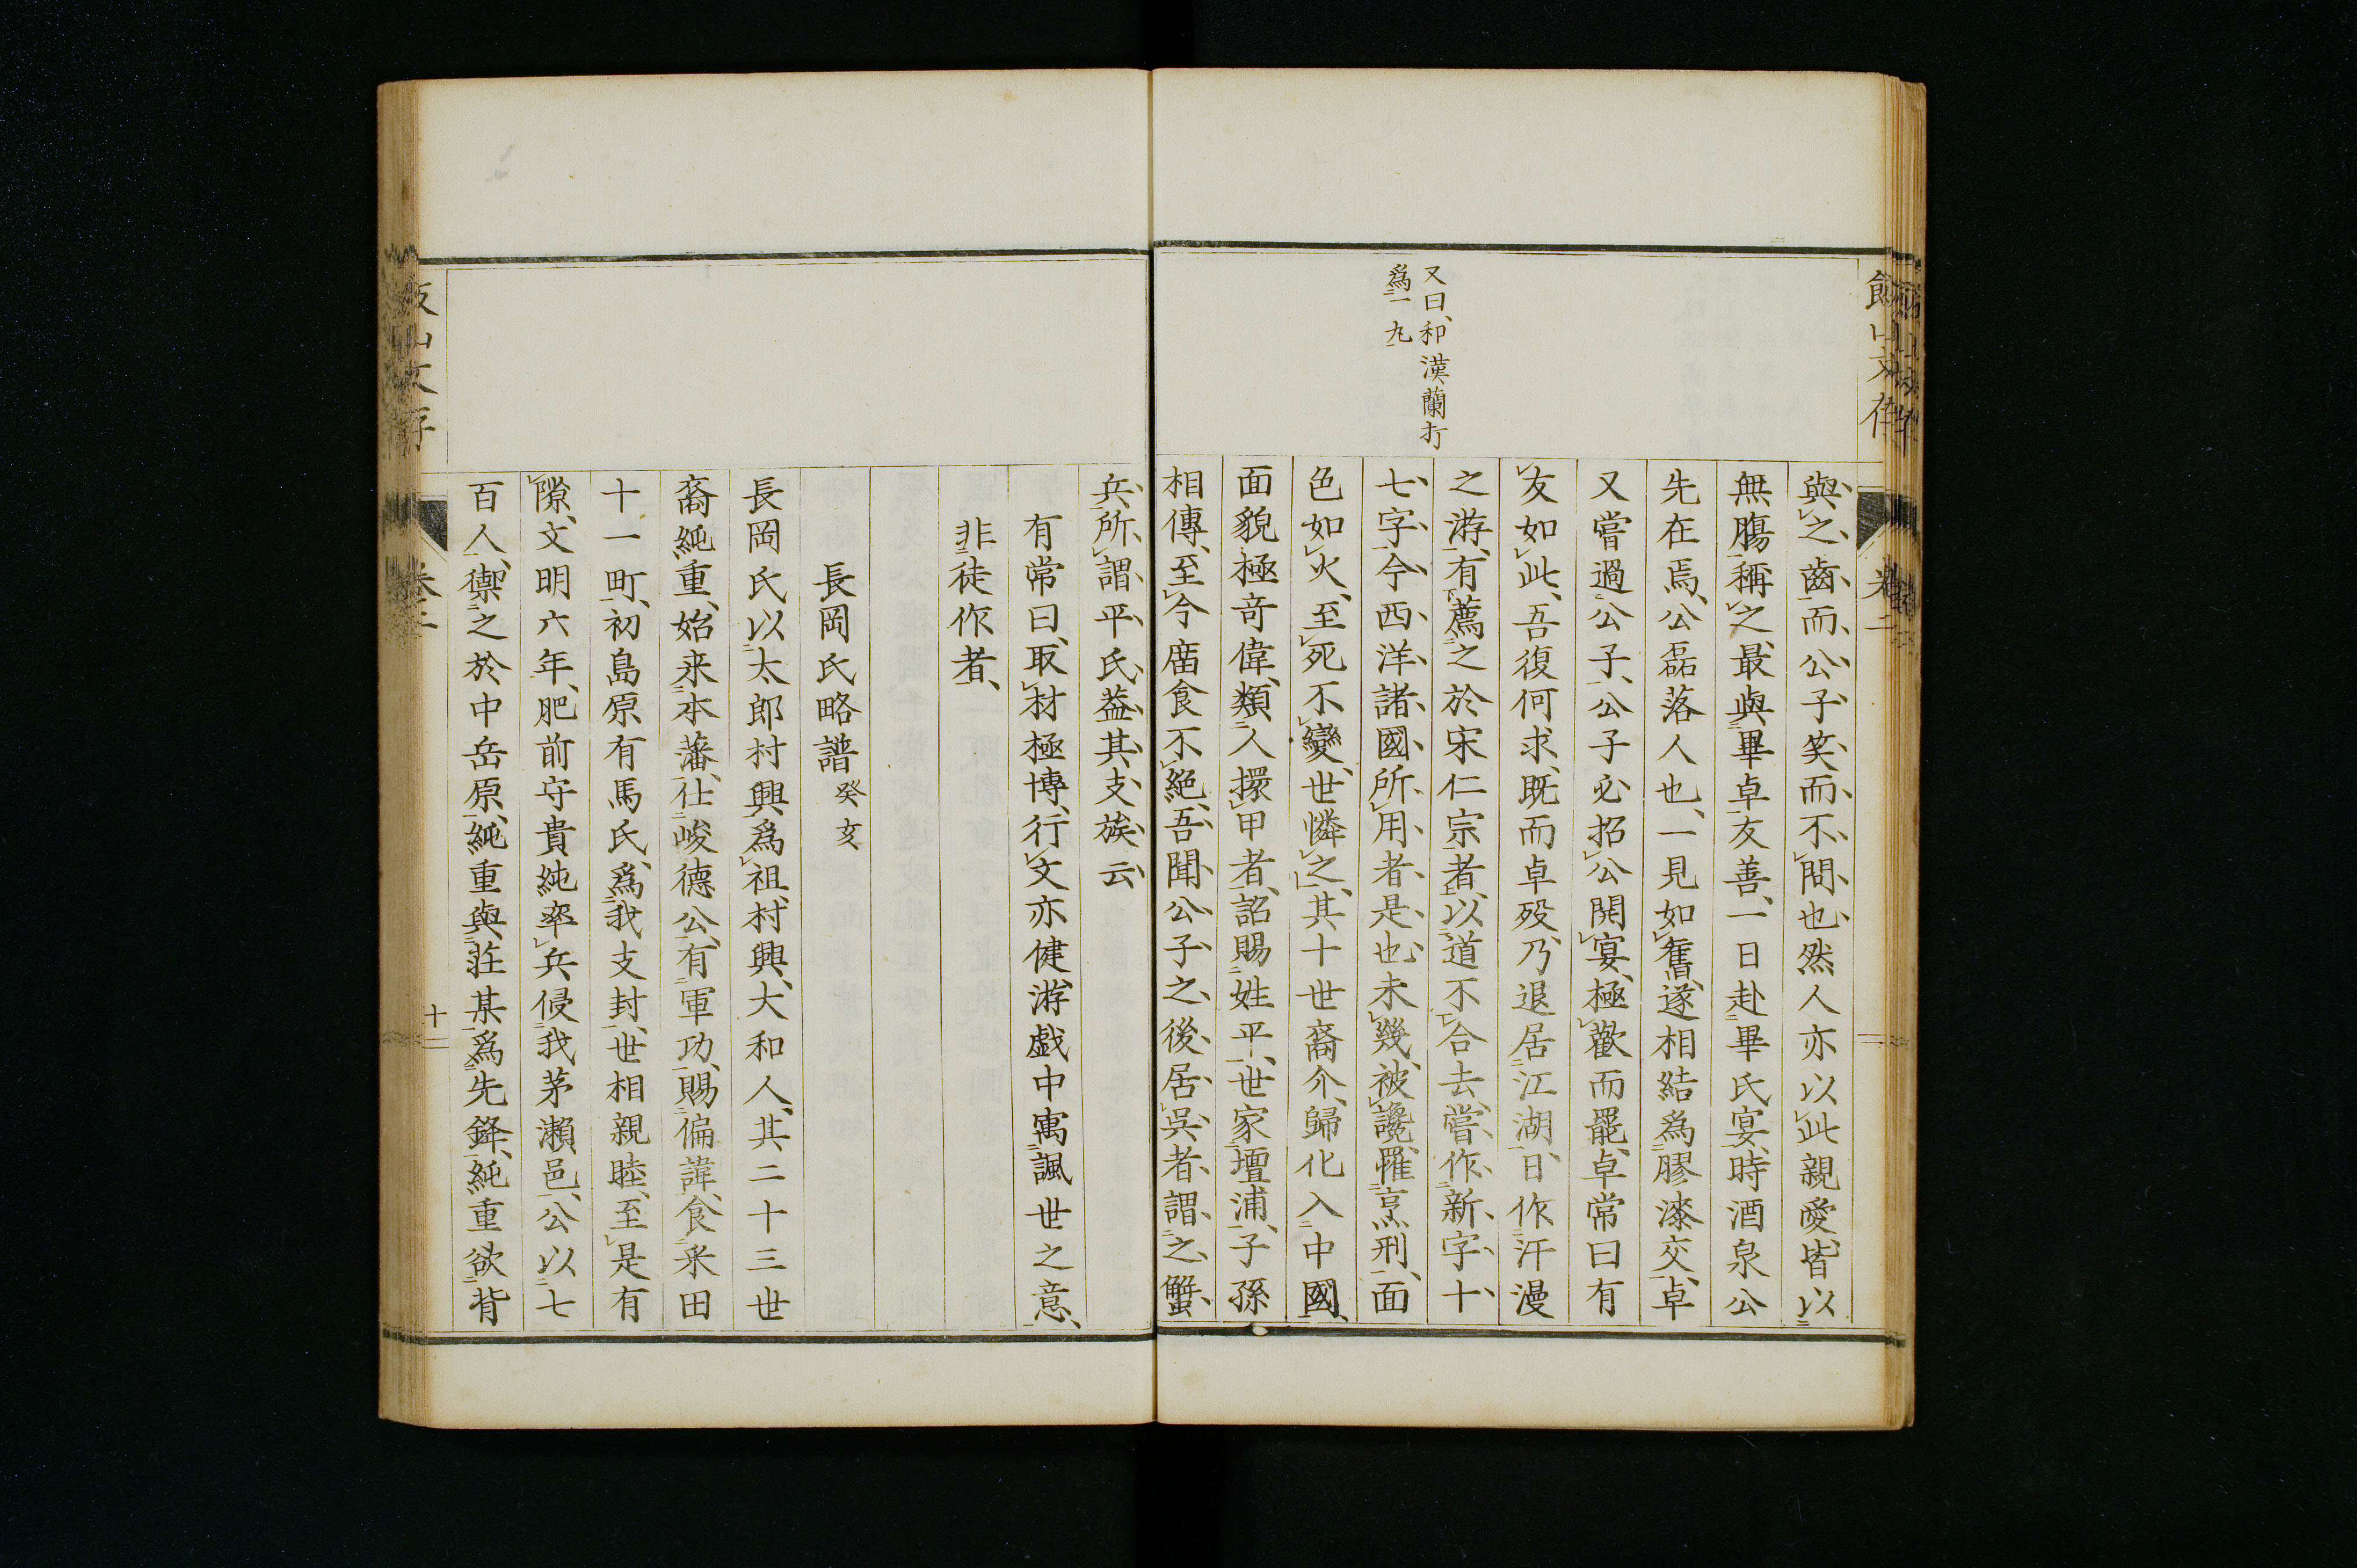 又曰、和漢蘭打
爲一丸
與之齒、而公子笑而不問也、然人亦以此親愛、皆以
無膓稱之、最與畢卓友善、一日赴畢氏宴、時酒泉公
先在焉、公磊落人也、一見如舊、遂相結爲膠漆交、卓
又嘗過公子、公子必招公開宴、極歡而罷、卓常曰有
友如此、吾復何求、既而卓歿、乃退居江湖、日作汗漫
之游、有薦之於宋仁宗者、以道不合去、嘗作新字十
七字、今西洋諸國所用者是也、未幾被讒、罹烹刑、面
色如火、至死不變、世憐之、其十世裔介、歸化入中國、
面貌極奇偉、類人擐甲者、詔賜姓平、世家壇浦、子孫
相傳、至今庿食不絶、吾聞公子之後、居呉者、謂之蟹
兵、所謂平氏、蓋其支族云、
有常曰、取材極博、行文亦健、游戯中寓諷世之意、
非徒作者、
長岡氏略譜 癸亥
長岡氏以太郎村興爲祖、村興、大和人、其二十三世
裔純重、始来本藩、仕峻德公、有軍功、賜偏諱、食釆田
十一町、初島原有馬氏、爲我支封、世相親睦、至是有
隙、文明六年、肥前守貴純率兵侵我茅瀬邑、公以七
百人、禦之於中岳原、純重與荘某爲先鋒、純重欲背
卷二
十二